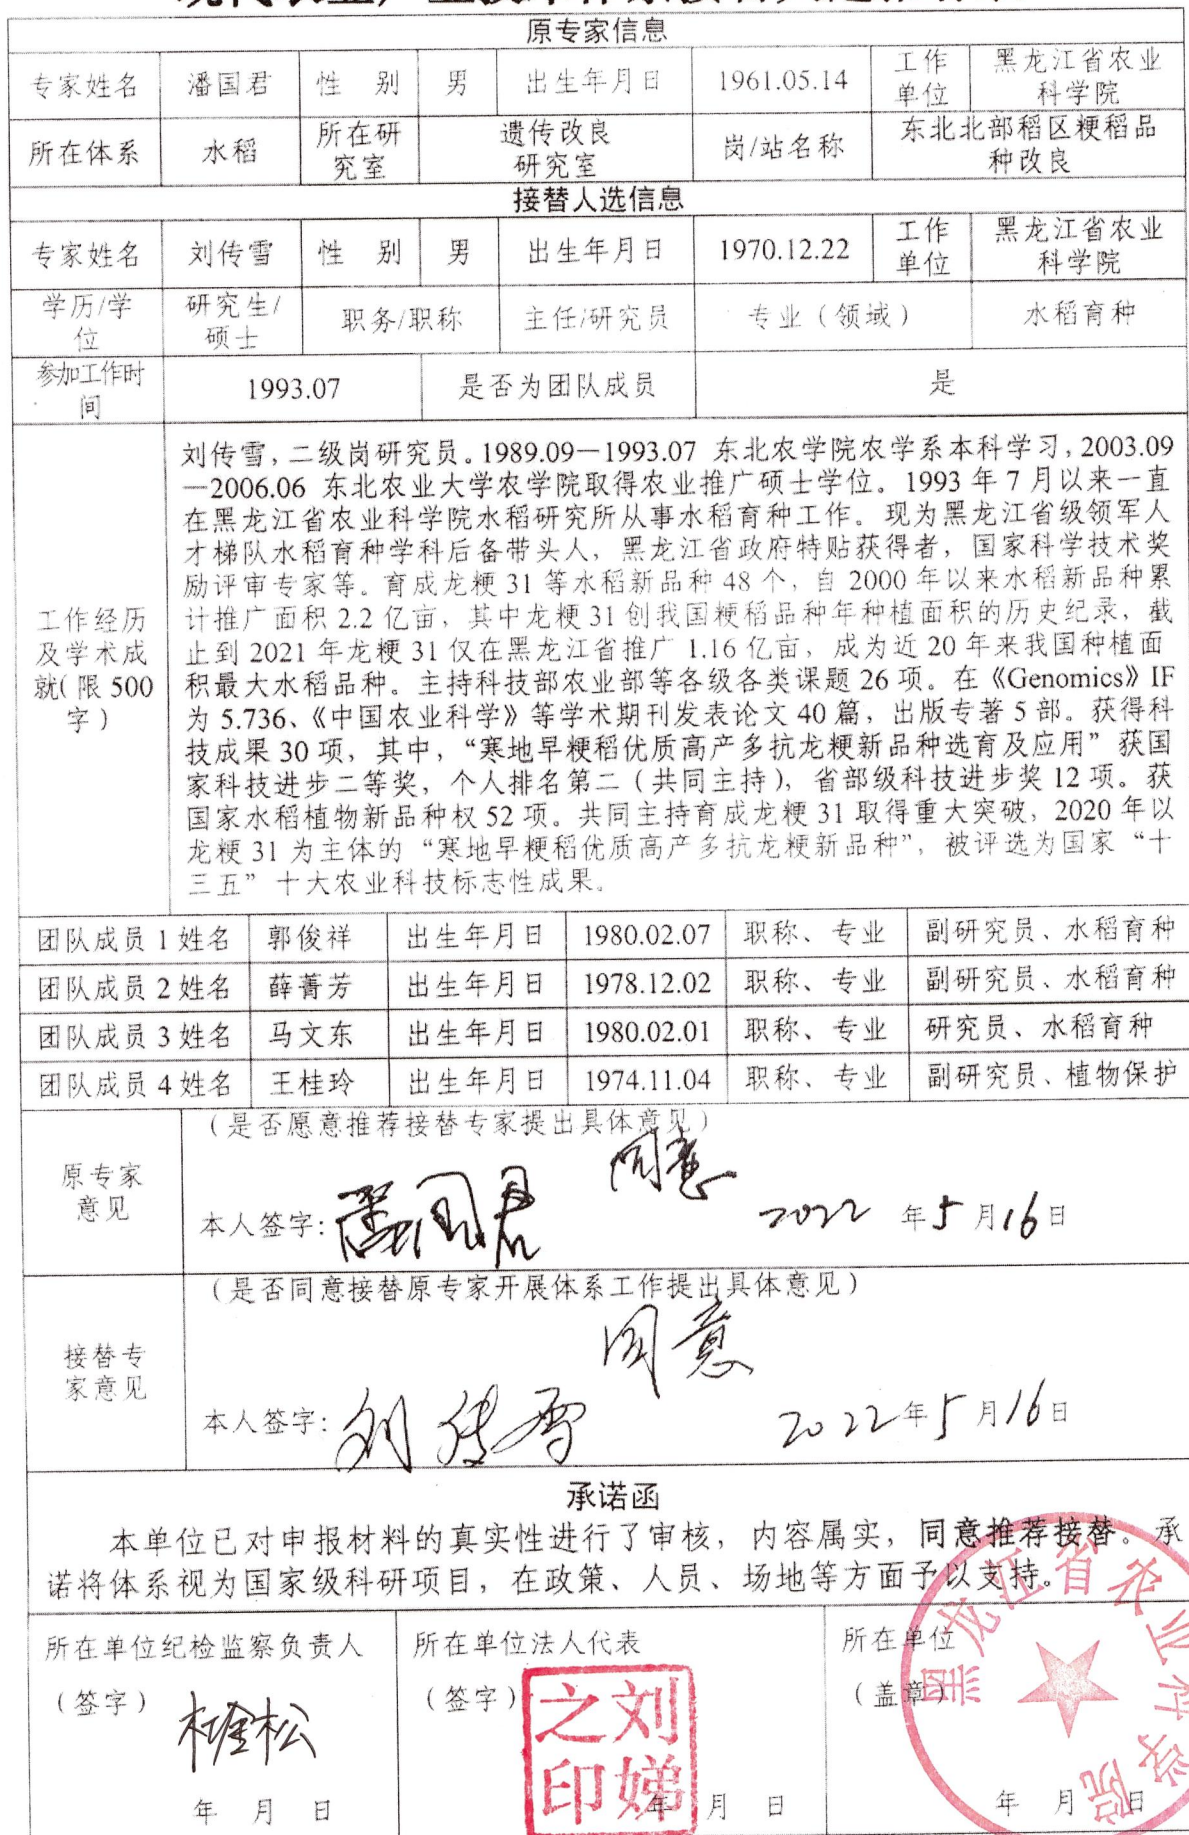 原专家信息
专家姓名 潘国君 性 别 男 出生年月日 1961.05.14 工作单位 黑龙江省农业科学院
所在体系 水稻 所在研究室 遗传改良研究室 岗/站名称 东北北部稻区粳稻品种改良
接替人选信息
专家姓名 刘传雪 性 别 男 出生年月日 1970.12.22 工作单位 黑龙江省农业科学院
学历/学位 研究生/硕士 职务/职称 主任/研究员 专业（领域） 水稻育种
参加工作时间 1993.07 是否为团队成员 是
工作经历及学术成就(限500字)
刘传雪，二级岗研究员。1989.09—1993.07 东北农学院农学系本科学习，2003.09
—2006.06 东北农业大学农学院取得农业推广硕士学位。1993 年 7 月以来一直
在黑龙江省农业科学院水稻研究所从事水稻育种工作。现为黑龙江省级领军人
才梯队水稻育种学科后备带头人，黑龙江省政府特贴获得者，国家科学技术奖
励评审专家等。育成龙粳 31 等水稻新品种 48 个，自 2000 年以来水稻新品种累
计推广面积 2.2 亿亩，其中龙粳 31 创我国粳稻品种年种植面积的历史纪录，截
止到 2021 年龙粳 31 仅在黑龙江省推广 1.16 亿亩，成为近 20 年来我国种植面
积最大水稻品种。主持科技部农业部等各级各类课题 26 项。在《Genomics》IF
为 5.736、《中国农业科学》等学术期刊发表论文 40 篇，出版专著 5 部。获得科
技成果 30 项，其中，“寒地早粳稻优质高产多抗龙粳新品种选育及应用”获国
家科技进步二等奖，个人排名第二（共同主持），省部级科技进步奖 12 项。获
国家水稻植物新品种权 52 项。共同主持育成龙粳 31 取得重大突破，2020 年以
龙粳 31 为主体的“寒地早粳稻优质高产多抗龙粳新品种”，被评选为国家“十
三五”十大农业科技标志性成果。
团队成员 1 姓名 郭俊祥 出生年月日 1980.02.07 职称、专业 副研究员、水稻育种
团队成员 2 姓名 薛菁芳 出生年月日 1978.12.02 职称、专业 副研究员、水稻育种
团队成员 3 姓名 马文东 出生年月日 1980.02.01 职称、专业 研究员、水稻育种
团队成员 4 姓名 王桂玲 出生年月日 1974.11.04 职称、专业 副研究员、植物保护
原专家意见
（是否愿意推荐接替专家提出具体意见）
同意
本人签字：潘国君 2022 年 5 月 16 日
接替专家意见
（是否同意接替原专家开展体系工作提出具体意见）
同意
本人签字：刘传雪 2022 年 5 月 16 日
承诺函
本单位已对申报材料的真实性进行了审核，内容属实，同意推荐接替。承
诺将体系视为国家级科研项目，在政策、人员、场地等方面予以支持。
所在单位纪检监察负责人 所在单位法人代表 所在单位
（签字） （签字） （盖章）
刘娣之印
黑龙江省农业科学院
年 月 日 年 月 日 年 月 日